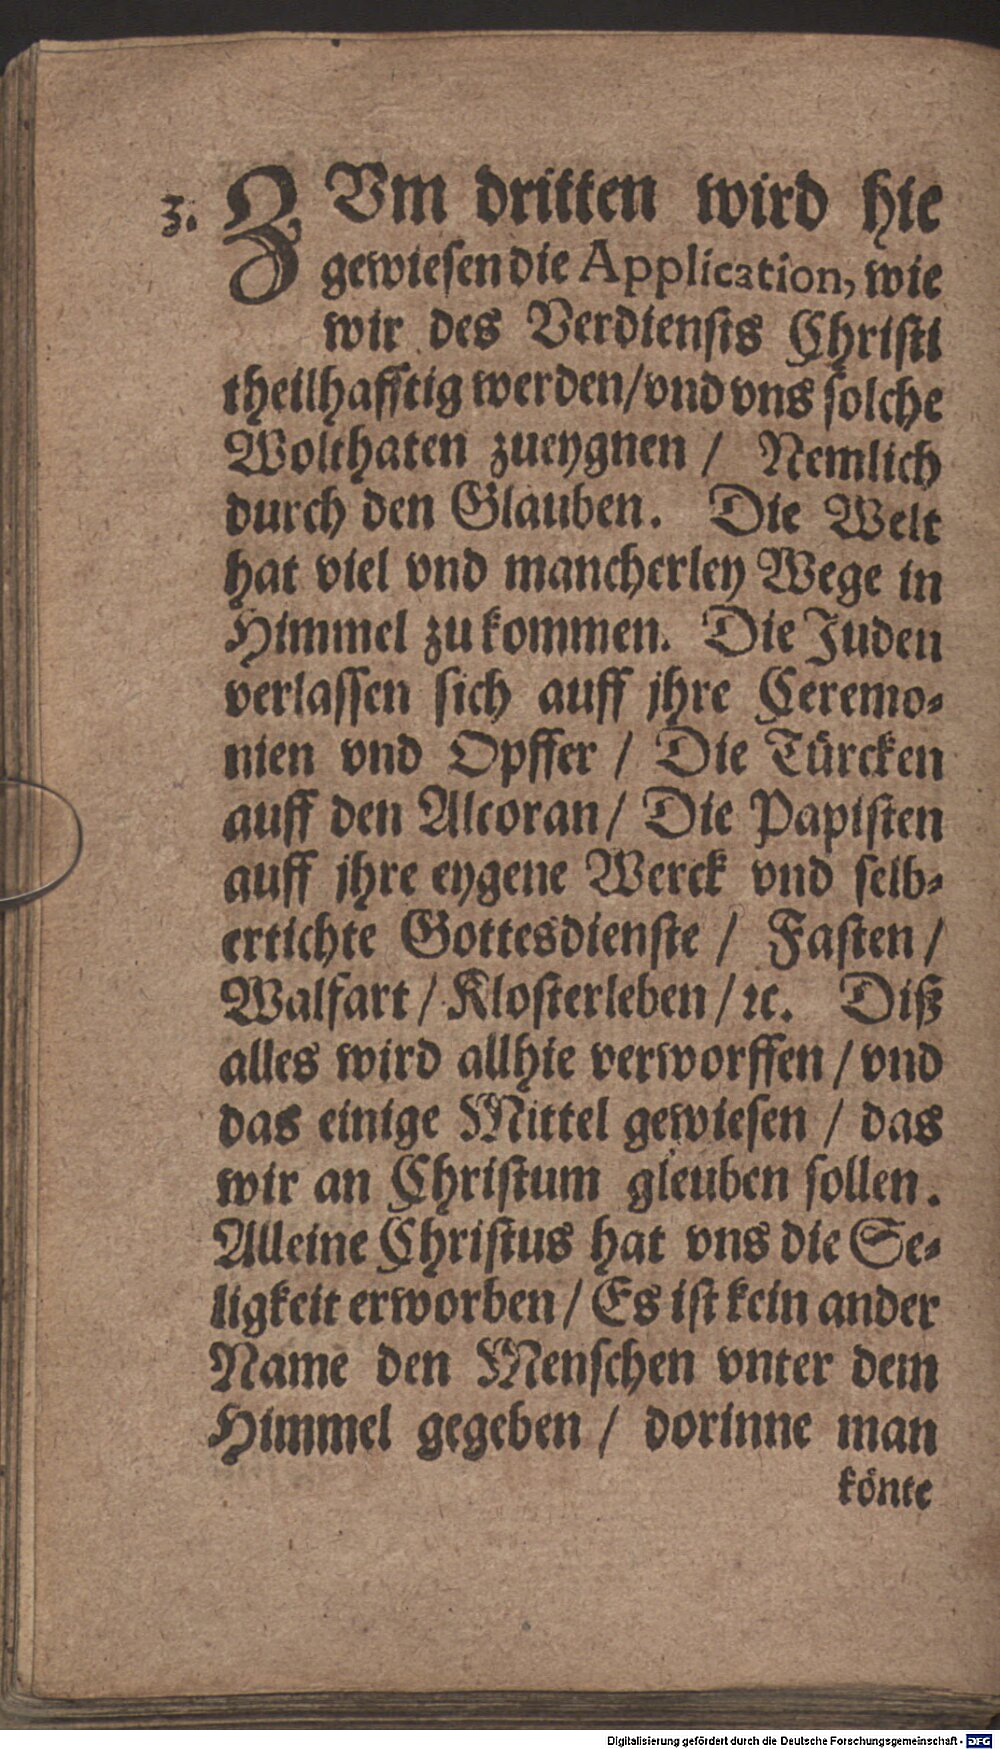 3. ZVm dritten wird hie
gewiesen die Application, wie
wir des Verdiensts Christi
theilhafftig werden/vnd vns solche
Wolthaten zueygnen / Nemlich
durch den Glauben. Die Welt
hat viel vnd mancherley Wege in
Himmel zu kommen. Die Juden
verlassen sich auff jhre Ceremo-
nien vnd Opffer / Die Türcken
auff den Alcoran / Die Papisten
auff jhre eygene Werck vnd selb-
ertichte Gottesdienste / Fasten /
Walfart / Klosterleben / ꝛc. Diß
alles wird allhie verworffen / vnd
das einige Mittel gewiesen / das
wir an Christum gleuben sollen.
Alleine Christus hat vns die Se-
ligkeit erworben / Es ist kein ander
Name den Menschen vnter dem
Himmel gegeben / dorinne man
könte
Digitalisierung gefördert durch die Deutsche Forschungsgemeinschaft - DFG